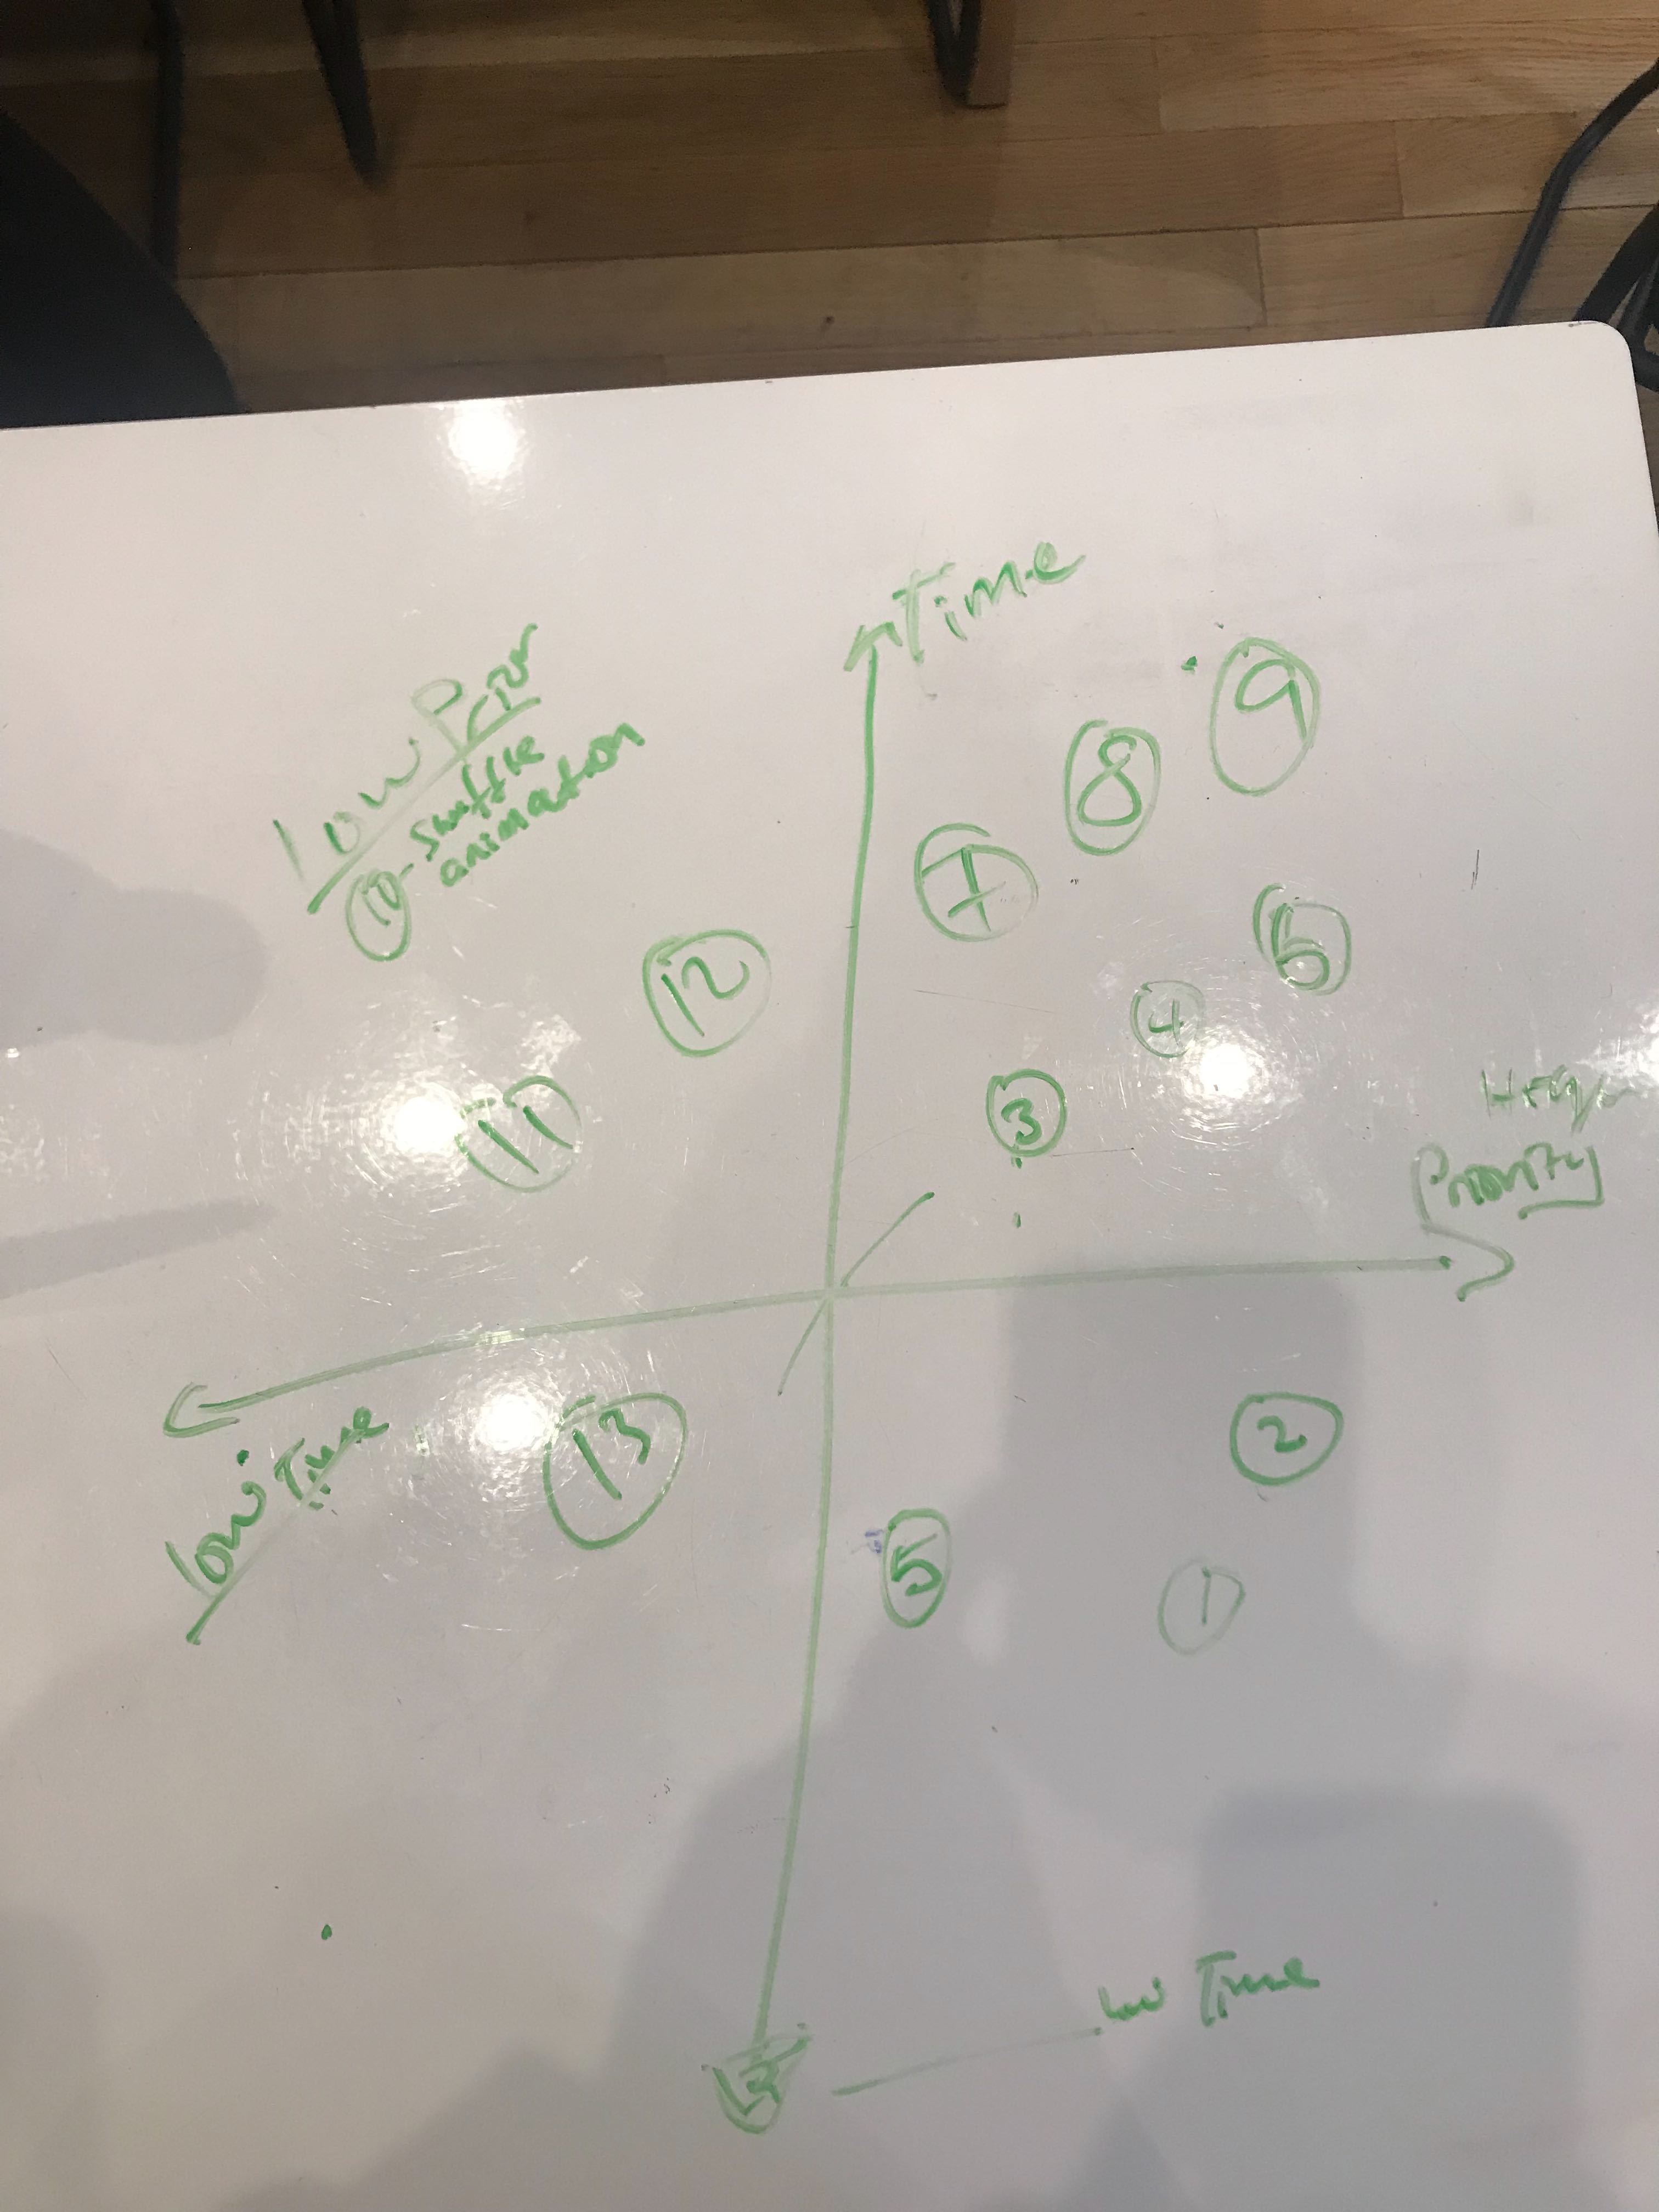 Time
9
Low Prior
8
10 - Shuffle
animation
7
6
12
4
3
11
High
Priority
13
2
low Time
5
1
low Time